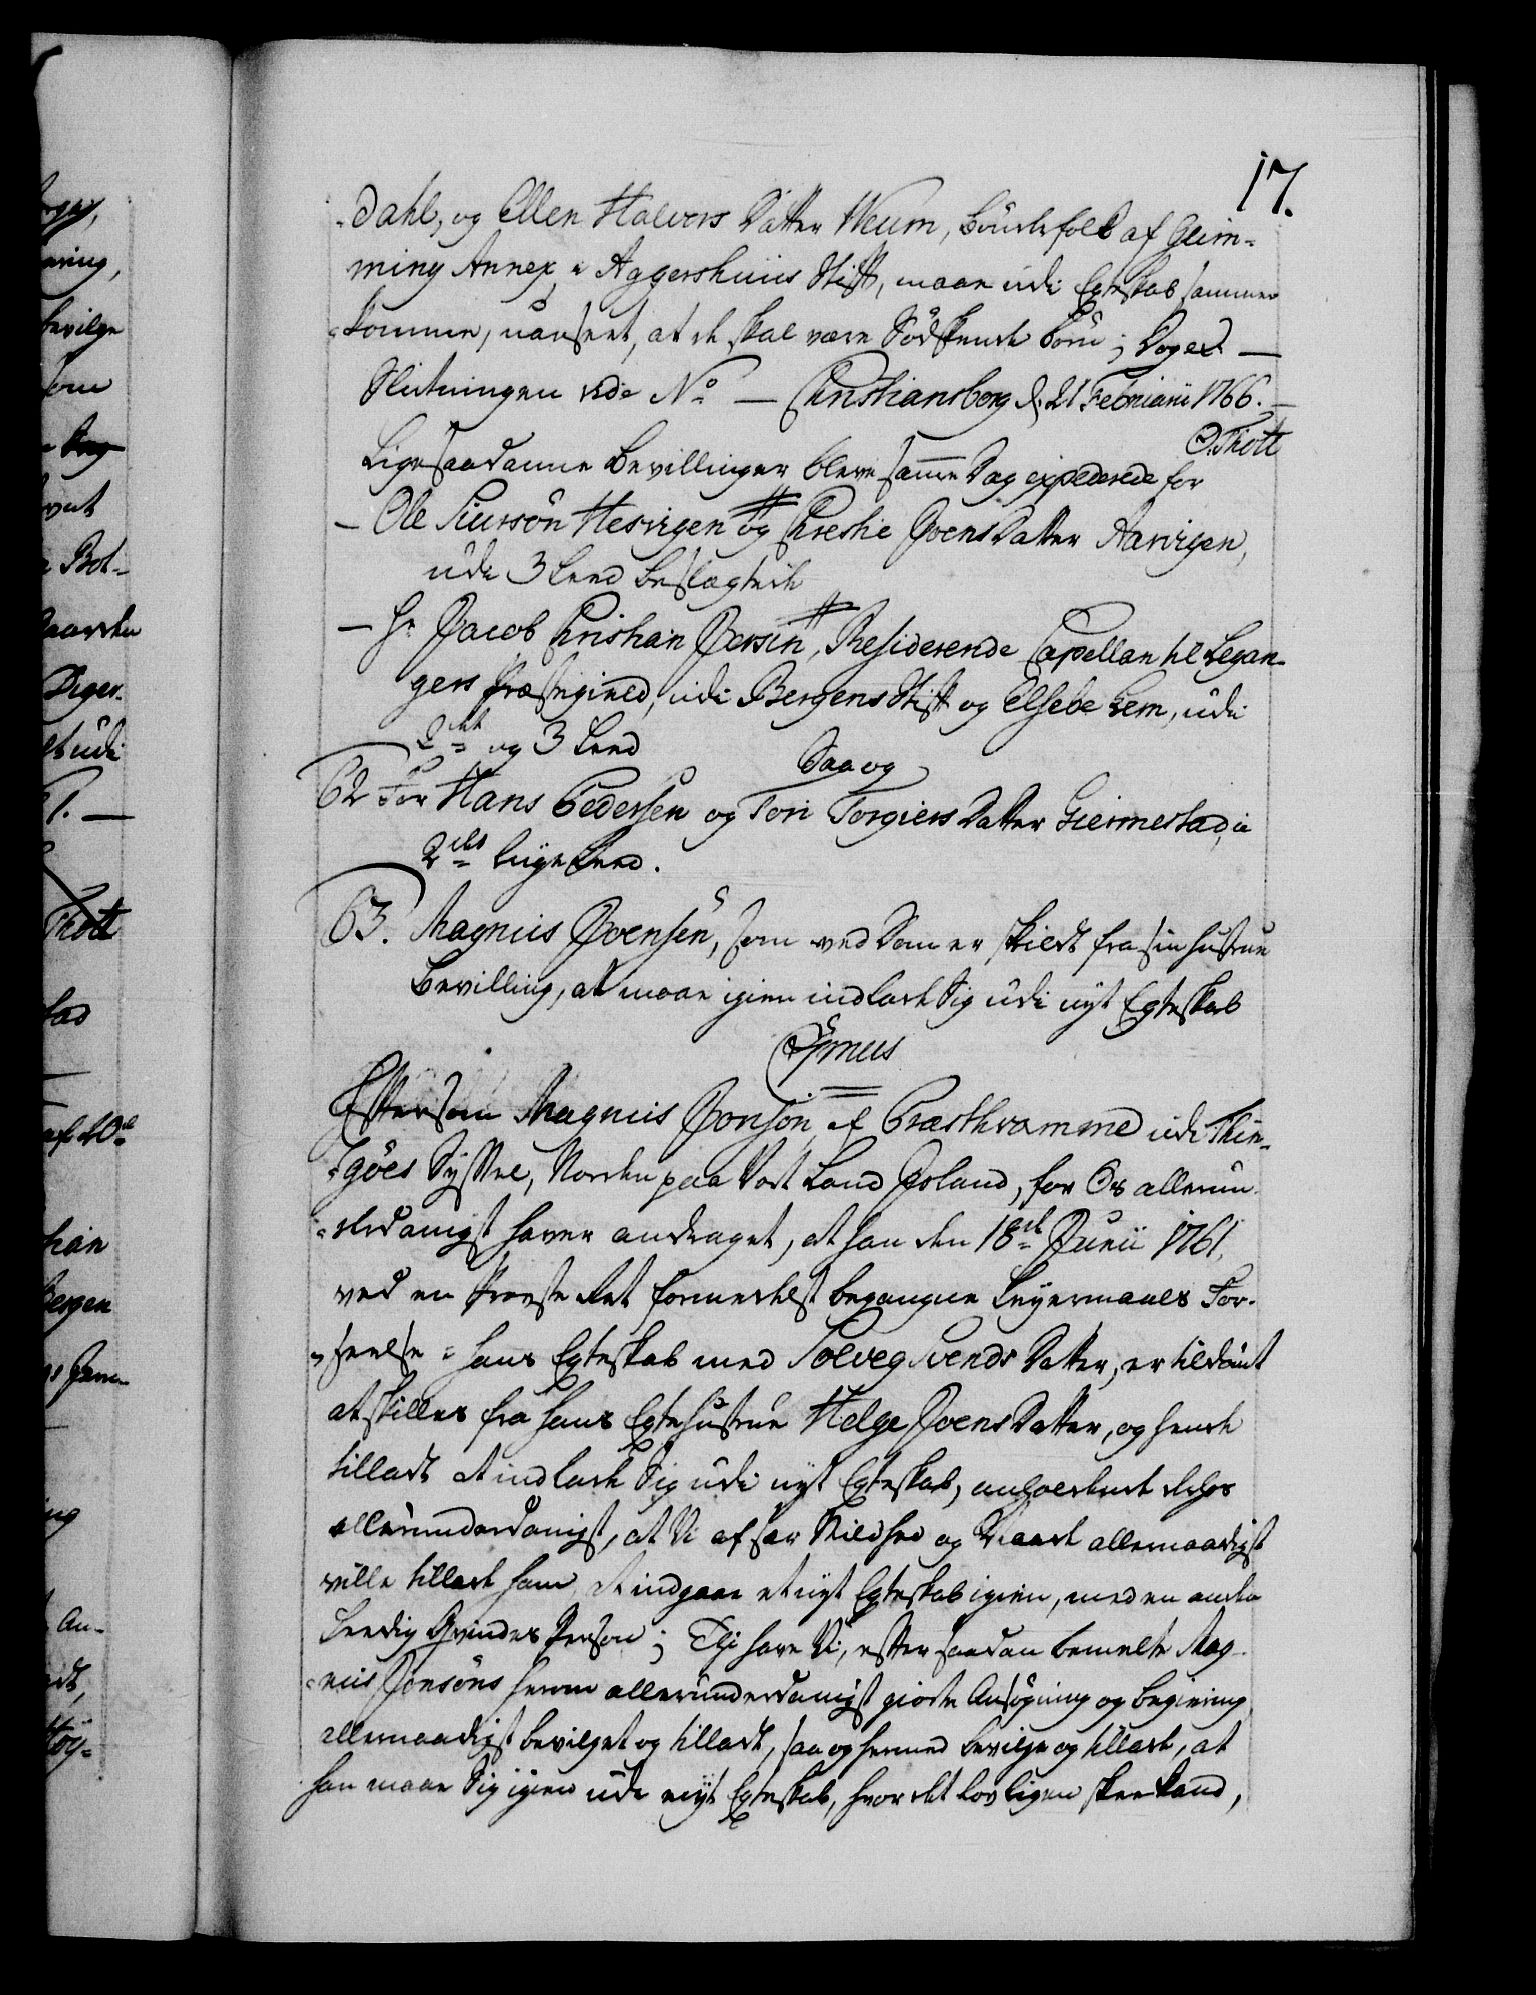 17.
-dahl, og Ellen Halvors Datter Weum, Bønderfolk af Glem-
ming Annex, i Aggershuus Stift, maae udi Egteskab sammen
-komme, uanseet, at de skal være Sødskende Børn; Dog ex. —
Slutningen vide No — Christiansborg d. 21 Februarii 1766. —
O. Thott
Ligesaadanne Bevillinger bleve samme Dag expederede for
— Ole Siursøn Hesvigen og Chrestie Joens Datter Aarvigen,
udi 3 Leed beslægtede
— Hr Jacob Christian Jersin, Residerende Capellan til Legan-
gers Præstegield, udi Bergens Stift og Elsebe Lem, udi
2det og 3 Leed
Saa og
62 For Hans Pedersen og Tori Torgiers Datter Giermestad, i
2det Liige Leed.
63. Magnus Joensen, som ved Dom er skildt fra sin Hustrue
Bevilling, at maae igien indlade Sig udi nyt Egteskab
C 7mus
Eftersom Magnus Jonsøn af Præsthvamme udi Thin-
-gøes Syssel, Norden paa Vort Land Island, for Os allerun-
-derdanigst haver andraget, at han den 18de Junii 1761.
ved en Provste Ret formedelst begangne Leyermaals For-
-seelse i hans Egteskab med Solveg Svends Datter, er tildømt
at skilles fra hans Egtehustrue Helge Joens Datter, og hende
tilladt at indlade Sig udi nyt Egteskab, anholdende derhos
allerunderdanigst, at Vi af sær Mildhed og Naade allernaadigst
ville tillade ham, at indgaae et nyt Egteskab igien, med en anden
Leedig Qvindes Person; Thi have Vi, efter saadan bemelte Mag-
-nus Jonsøns herom allerunderdanigst giorte Ansøgning og begiering
allernaadigst bevilget og tilladt, saa og hermed bevilge og tillade, at
han maae Sig igien udi nyt Egteskab, hvor det lovligen skee kand,